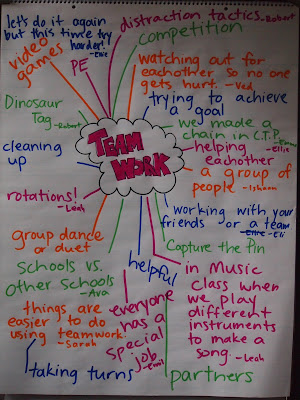 let's do it again
but this time try
harder! -Elie
video
games
PE
distraction tactics. -Robert
competition
watching out for
eachother so no one
gets hurt. -Ved
Dinosaur
Tag -Robert
trying to achieve
a goal
we made a
chain in C.T.P. -Emma
TEAM
WORK
helping -Ellie
eachother
cleaning
up
a group of
people -Ishaan
rotations!
-Leah
working with your
friends or a team
-Eli
group dance
or duet
Capture the Pin
helpful
schools vs.
other schools
-Ava
in Music
class when
we play
different
instruments
to make
a song. -Leah
everyone
has a
special
job
things are
easier to do
using teamwork.
-Sarah
taking turns
partners